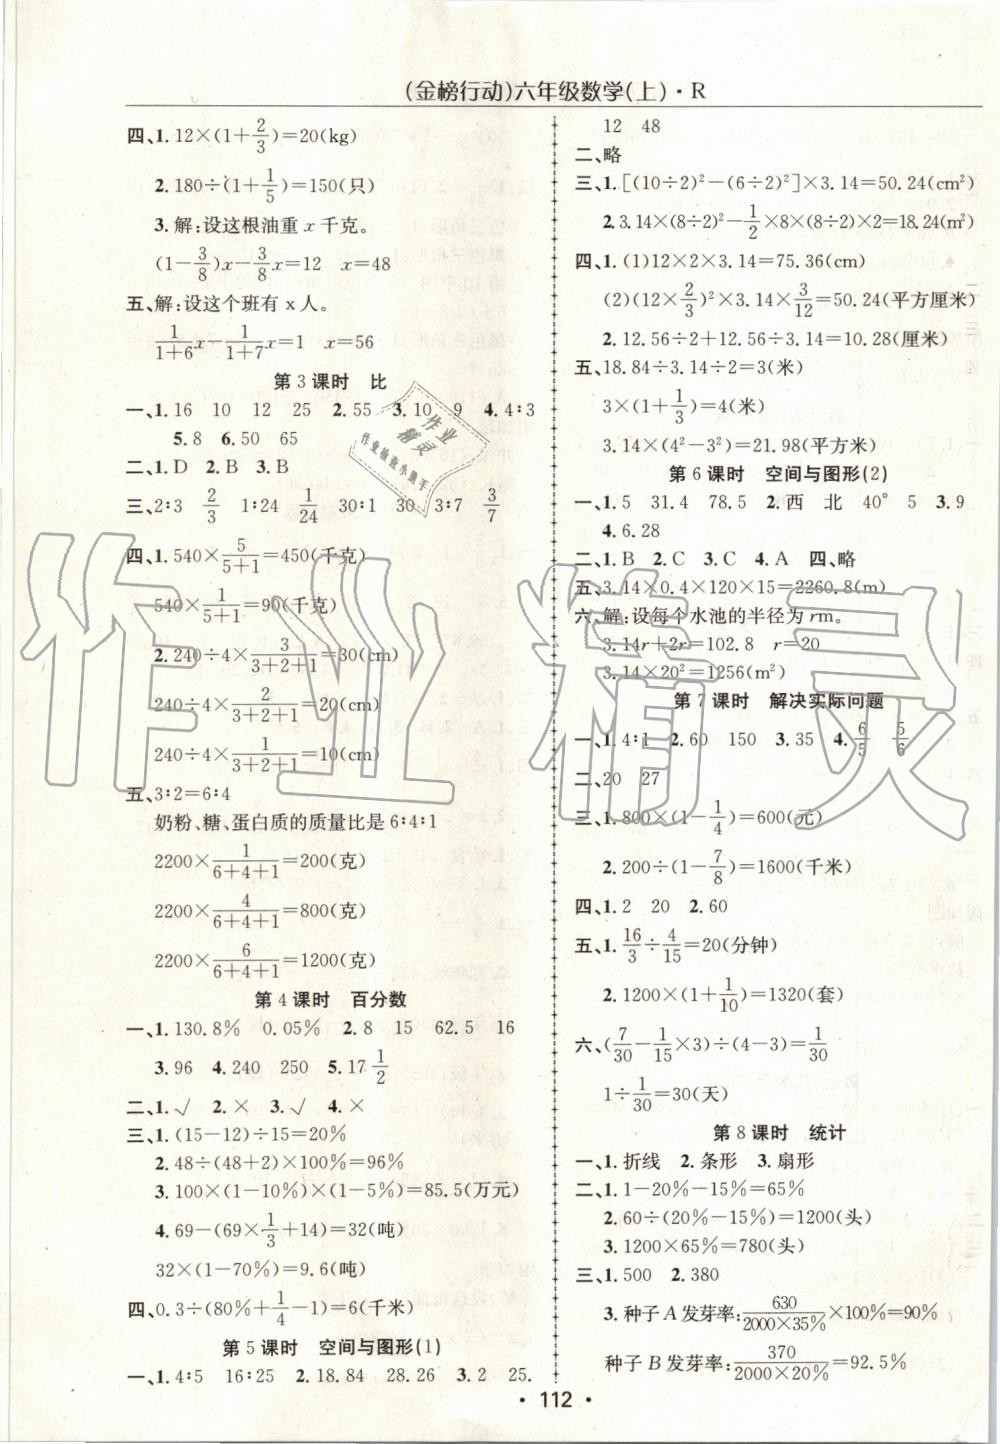 (金榜行动)六年级数学(上)·R
四、1. 12×(1+2/3)=20(kg)
2. 180÷(1+1/5)=150(只)
3. 解:设这根油重 x 千克。
(1-3/8)x-3/8x=12 x=48
五、解:设这个班有 x 人。
1/(1+6)x+1/(1+7)x=1 x=56
第 3 课时 比
一、1. 16 10 12 25 2. 55 3. 10 9 4. 4∶3
5. 8 6. 50 65
二、1. D 2. B 3. B
三、2∶3 2/3 1∶24 1/24 30∶1 30 3∶7 3/7
四、1. 540×5/(5+1)=450(千克)
540×1/(5+1)=90(千克)
2. 240÷4×3/(3+2+1)=30(cm)
240÷4×2/(3+2+1)=20(cm)
240÷4×1/(3+2+1)=10(cm)
五、3∶2=6∶4
奶粉、糖、蛋白质的质量比是 6∶4∶1
2200×1/(6+4+1)=200(克)
2200×4/(6+4+1)=800(克)
2200×6/(6+4+1)=1200(克)
第 4 课时 百分数
一、1. 130.8% 0.05% 2. 8 15 62.5 16
3. 96 4. 240 250 5. 17 1/2
二、1. √ 2. × 3. √ 4. ×
三、1. (15-12)÷15=20%
2. 48÷(48+2)×100%=96%
3. 100×(1-10%)×(1-5%)=85.5(万元)
4. 69-(69×1/3+14)=32(吨)
32×(1-70%)=9.6(吨)
四、0.3÷(80%+1/4-1)=6(千米)
第 5 课时 空间与图形(1)
一、1. 4∶5 16∶25 2. 18.84 28.26 3. 2 25.
12 48
二、略
三、1. [(10÷2)²-(6÷2)²]×3.14=50.24(cm²)
2. 3.14×(8÷2)²-1/2×8×(8÷2)×2=18.24(m²)
四、1. (1)12×2×3.14=75.36(cm)
(2)(12×2/3)²×3.14×3/12=50.24(平方厘米)
2. 12.56÷2+12.56÷3.14=10.28(厘米)
五、18.84÷3.14÷2=3(米)
3×(1+1/3)=4(米)
3.14×(4²-3²)=21.98(平方米)
第 6 课时 空间与图形(2)
一、1. 5 31.4 78.5 2. 西 北 40° 5 3. 9
4. 6.28
二、1. B 2. C 3. C 4. A 四、略
五、3.14×0.4×120×15=2260.8(m)
六、解:设每个水池的半径为 rm。
3.14r+2r=102.8 r=20
3.14×20²=1256(m²)
第 7 课时 解决实际问题
一、1. 4∶1 2. 60 150 3. 35 4. 6/5 5/6
二、20 27
三、1. 800×(1-1/4)=600(元)
2. 200÷(1-7/8)=1600(千米)
四、1. 2 20 2. 60
五、1. 16/3÷4/15=20(分钟)
2. 1200×(1+1/10)=1320(套)
六、(7/30-1/15×3)÷(4-3)=1/30
1÷1/30=30(天)
第 8 课时 统计
一、1. 折线 2. 条形 3. 扇形
二、1. 1-20%-15%=65%
2. 60÷(20%-15%)=1200(头)
3. 1200×65%=780(头)
三、1. 500 2. 380
3. 种子 A 发芽率:630/(2000×35%)×100%=90%
种子 B 发芽率:370/(2000×20%)=92.5%
· 112 ·
作业精灵
作业
精灵
作业检查小助手